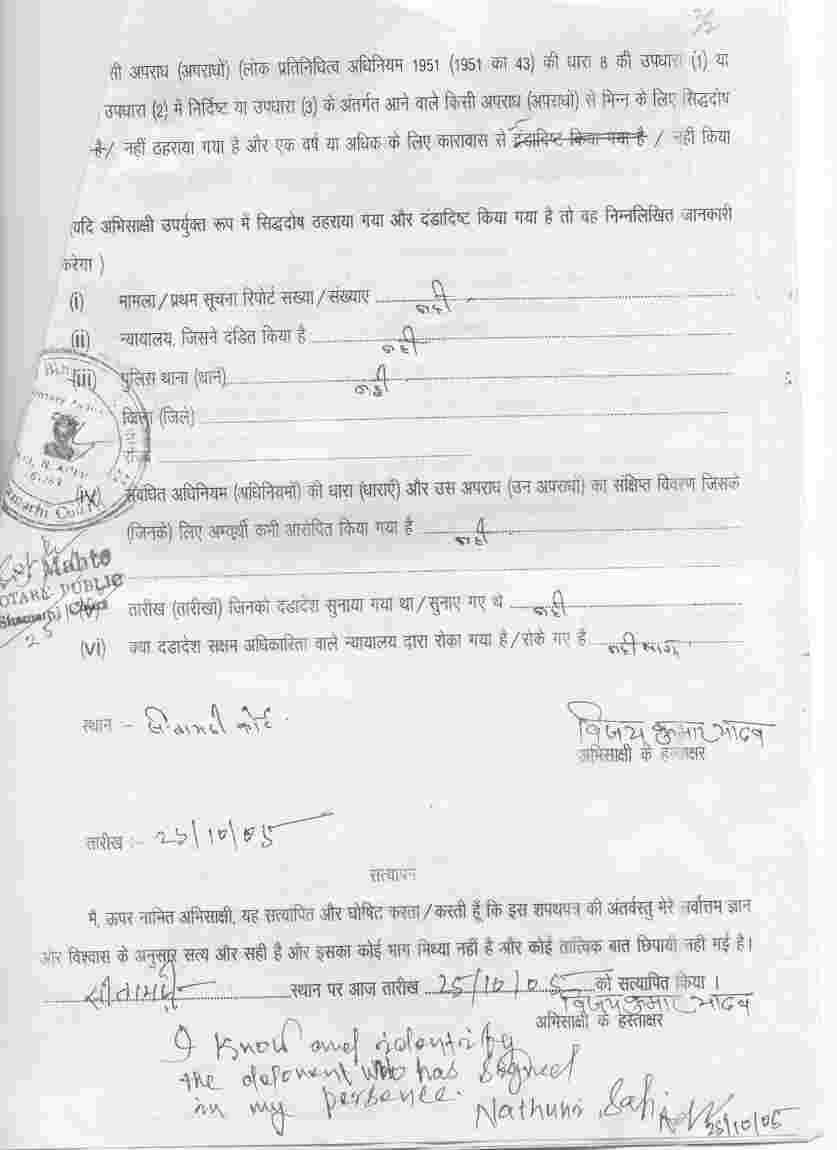 सी अपराध (अपराधों) (लोक प्रतिनिधित्व अधिनियम 1951 (1951 का 43) की धारा 8 की उपधारा (1) या
उपधारा (2) में निर्दिष्ट या उपधारा (3) के अंतर्गत आने वाले किसी अपराध (अपराधों) से भिन्न के लिए सिद्धदोष
है/ नहीं ठहराया गया है और एक वर्ष या अधिक के लिए कारावास से दंडादिष्ट किया गया है / नहीं किया
(यदि अभिसाक्षी उपर्युक्त रूप में सिद्धदोष ठहराया गया और दंडादिष्ट किया गया है तो वह निम्नलिखित जानकारी
करेगा )
(i) मामला/प्रथम सूचना रिपोर्ट सख्या/संख्याए नहीं
(ii) न्यायालय, जिसने दंडित किया है नहीं
(iii) पुलिस थाना (थाने) नहीं
जिला (जिले)
(iv) संबंधित अधिनियम (अधिनियमों) की धारा (धाराएँ) और उस अपराध (उन अपराधों) का संक्षिप्त विवरण जिसके
(जिनके) लिए अभ्यर्थी कभी आरोपित किया गया है नहीं
Mahto
NOTARY PUBLIC
तारीख (तारीखों) जिनको दंडादेश सुनाया गया था/सुनाए गए थे नहीं
25
(vi) क्या दंडादेश सक्षम अधिकारिता वाले न्यायालय द्वारा रोका गया है/रोके गए है नहीं लागू
स्थान :- सीतामढ़ी कोर्ट
विजय कुमार यादव
अभिसाक्षी के हस्ताक्षर
तारीख :- 25/10/05
सत्यापन
मैं, ऊपर नामित अभिसाक्षी, यह सत्यापित और घोषित करता/करती हूँ कि इस शपथपत्र की अंतर्वस्तु मेरे सर्वोत्तम ज्ञान
और विश्वास के अनुसार सत्य और सही है और इसका कोई भाग मिथ्या नहीं है और कोई तात्विक बात छिपायी नही गई है।
सीतामढ़ी स्थान पर आज तारीख 25/10/05 को सत्यापित किया ।
विजय कुमार यादव
अभिसाक्षी के हस्ताक्षर
I know and identify
the deponent who has signed
in my persence.
Nathuni Sah
25/10/05